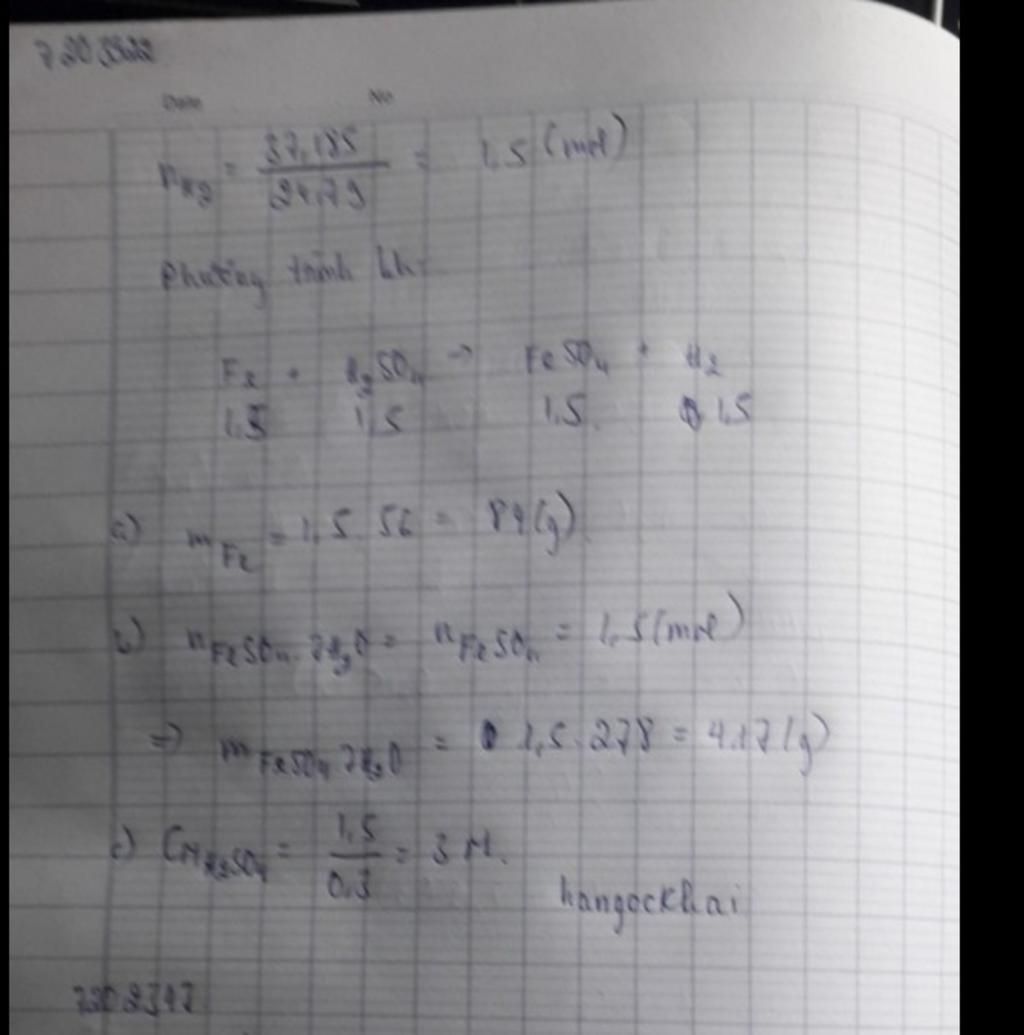 7203822
Date No
nH2 = 37,185 / 24,79 = 1,5 (mol)
Phương trình hh:
Fe + H2SO4 → FeSO4 + H2
1,5 1,5 1,5 1,5
a) mFe = 1,5.56 = 84(g)
b) nFeSO4.7H2O = nFeSO4 = 1,5(mol)
=> mFeSO4.7H2O = 1,5.278 = 417(g)
c) CMH2SO4 = 1,5 / 0,3 = 3 M.
hangockhai
7202347